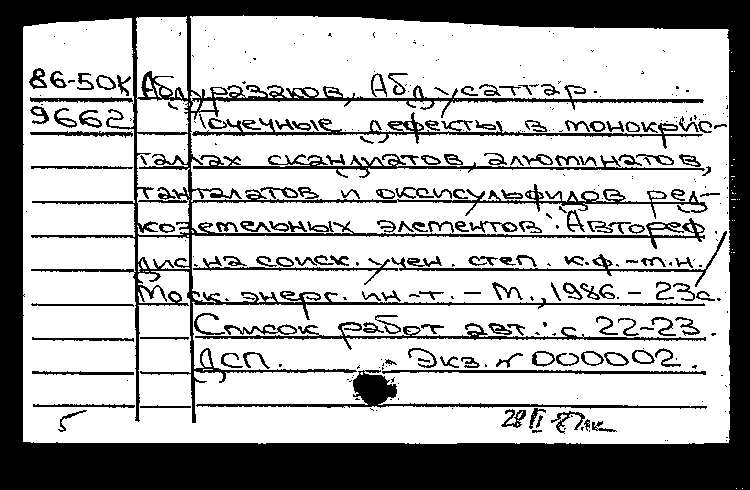 86-50К Абдуразаков, Абдусаттар.
9662 Точечные дефекты в монокрис-
таллах скандиатов, алюминатов,
танталатов и оксисульфидов ред-
коземельных элементов : Автореф.
дис. на соиск. учен. степ. к.ф.-м.н. /
Моск. энерг. ин-т. - М., 1986. - 23с.
Список работ авт.: с. 22-23.
ДСП. Экз. № 000002.
5